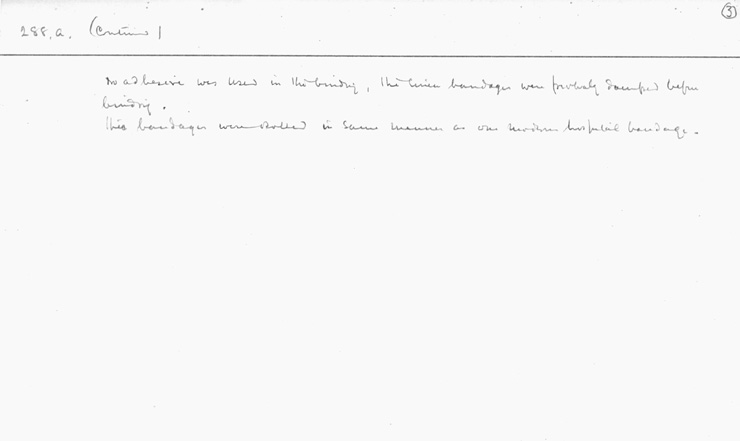 3
288.a. (Continued)
No adhesive was used in the binding, the linen bandages were probably damped before
binding.
The bandages were rolled in same manner as our modern hospital bandage.